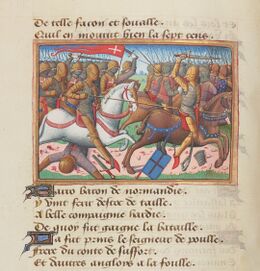 De telle facon et foualle
Quil en mourut bien la sept cens.
baron de normandie.
y vint feur destre de taille.
A belle compaignie hardie.
De quoy fut gaigne la bataille.
La fut prins le seigneur de poulle.
Frere du conte de suffort.
Et dautres anglois a la foulle.